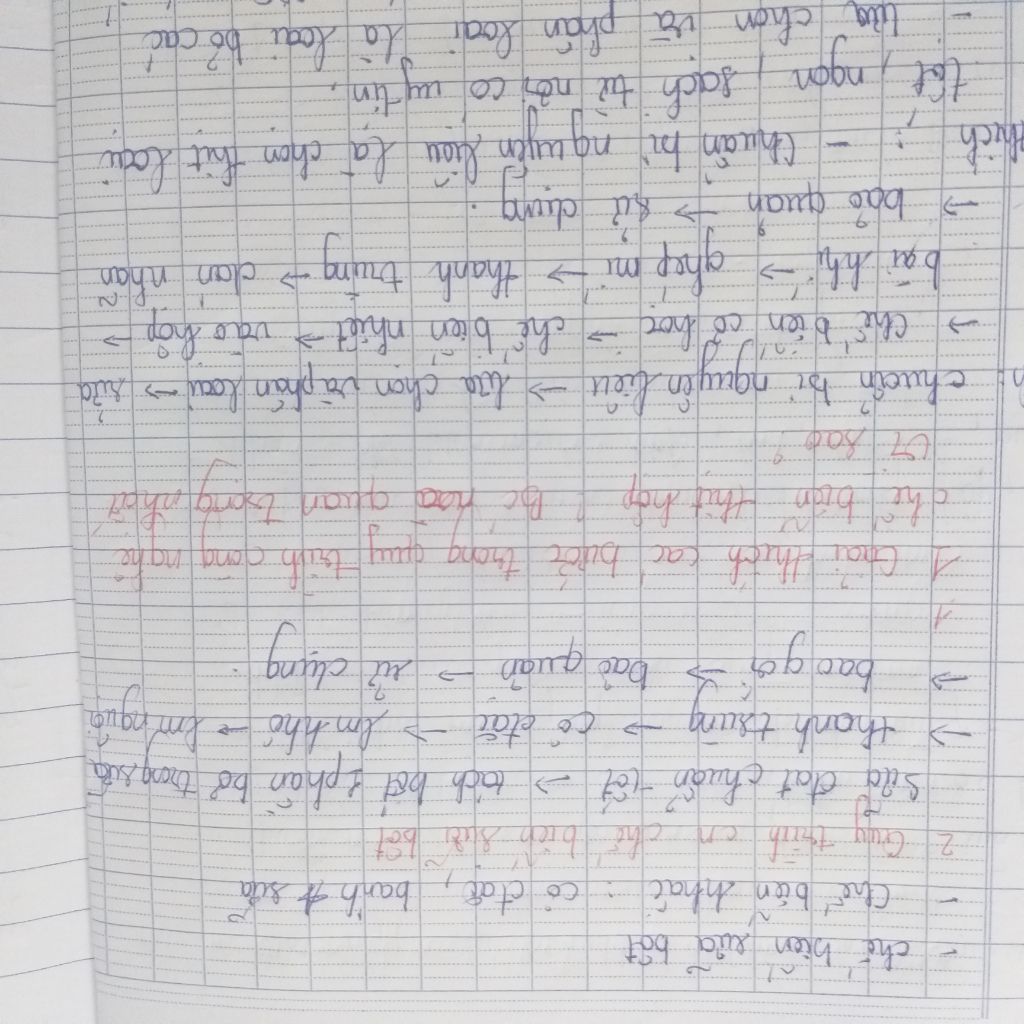 - chế biến sữa bột
- chế biến khác : cô đặc, bánh sữa
2 Quy trình cn chế biến sữa bột
sữa đạt chuẩn tốt → tách bớt 1 phần bơ trong sữa
→ thanh trùng → cô đặc → làm khô → làm nguội
→ bao gói → bảo quản → sử dụng .
1
1 Giải thích các bước trong quy trình công nghệ
chế biến thịt hộp ? Bc nào quan trọng nhất
Vì sao ?
chuẩn bị nguyên liệu → lựa chọn và phân loại → rửa
→ chế biến cơ học → chế biến nhiệt → vào hộp →
bài khí → ghép mí → thanh trùng → dán nhãn
→ bảo quản → sử dụng .
thích : - Chuẩn bị nguyên liệu là chọn thịt loại
tốt, ngon, sạch từ nơi có uy tín.
- lựa chọn và phân loại là loại bỏ các